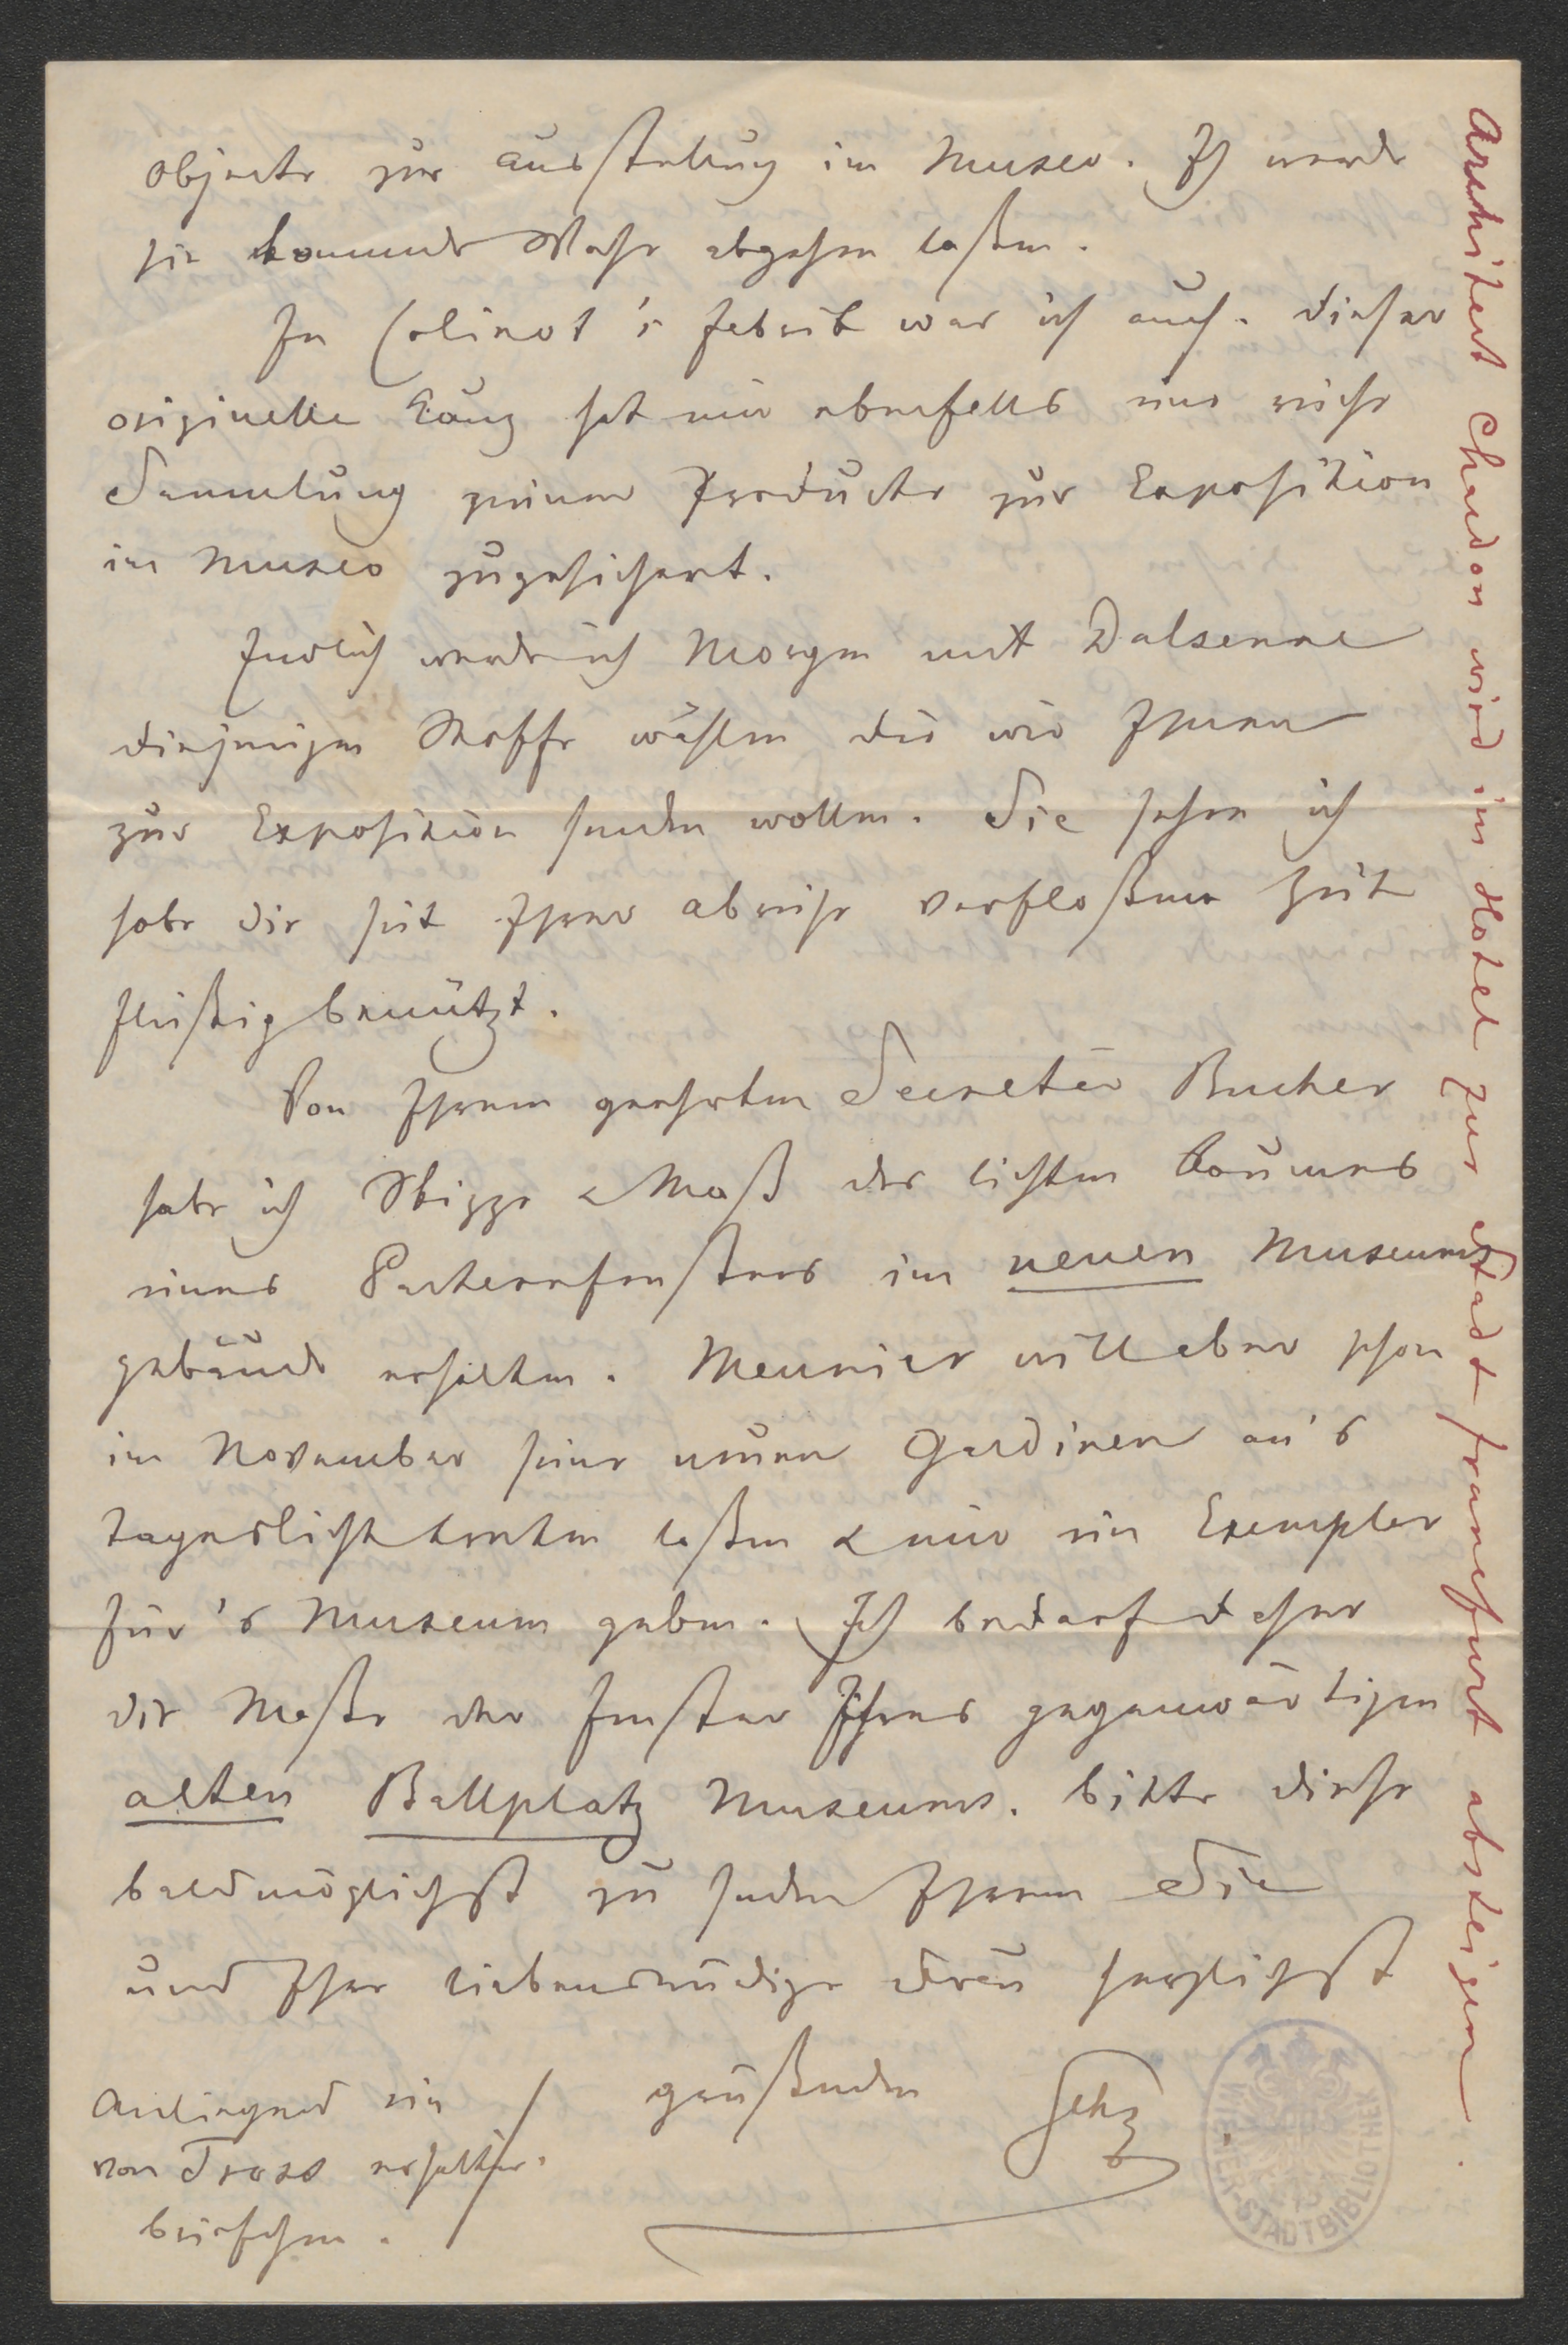 Objecte zur Ausstellung im Museo. Ich werde
sie kommende Woche abgehen laßen.
In Colinot's Fabrik war ich auch. Dieser
originelle Kauz hat mir ebenfalls eine reiche
Sammlung seiner Producte zur Exposition
im Museo zugesichert.
Endlich werde ich Morgen mit Dalsenne
diejenigen Stoffe wählen die wir Ihnen
zur Exposition senden wollen. Sie sehen ich
habe die seit Ihrer Abreise verfloßene Zeit
fleißig benützt.
Von Ihrem geehrten Secretär Bucher
habe ich Skizze & Maß des lichten Raumes
eines Parterrefensters im neuen Museums
gebäude erhalten. Meunier will aber schon
im November seine neuen Gardinen an's
Tageslicht treten laßen & mir ein Exemplar
für's Museum geben. Ich bedarf daher
die Maße der Fenster Ihres gegenwärtigen
alten Ballplatz Museums. Bitte diese
baldmöglichst zu senden Ihrem Sie
und Ihre liebenswürdige Frau herzlichst
grüßenden
Anliegend ein
von Tross erhaltenes
Briefchen.
Architect Chardon wird im Hotel zur Stadt Francfurt absteigen.
WIENER-STADTBIBLIOTHEK